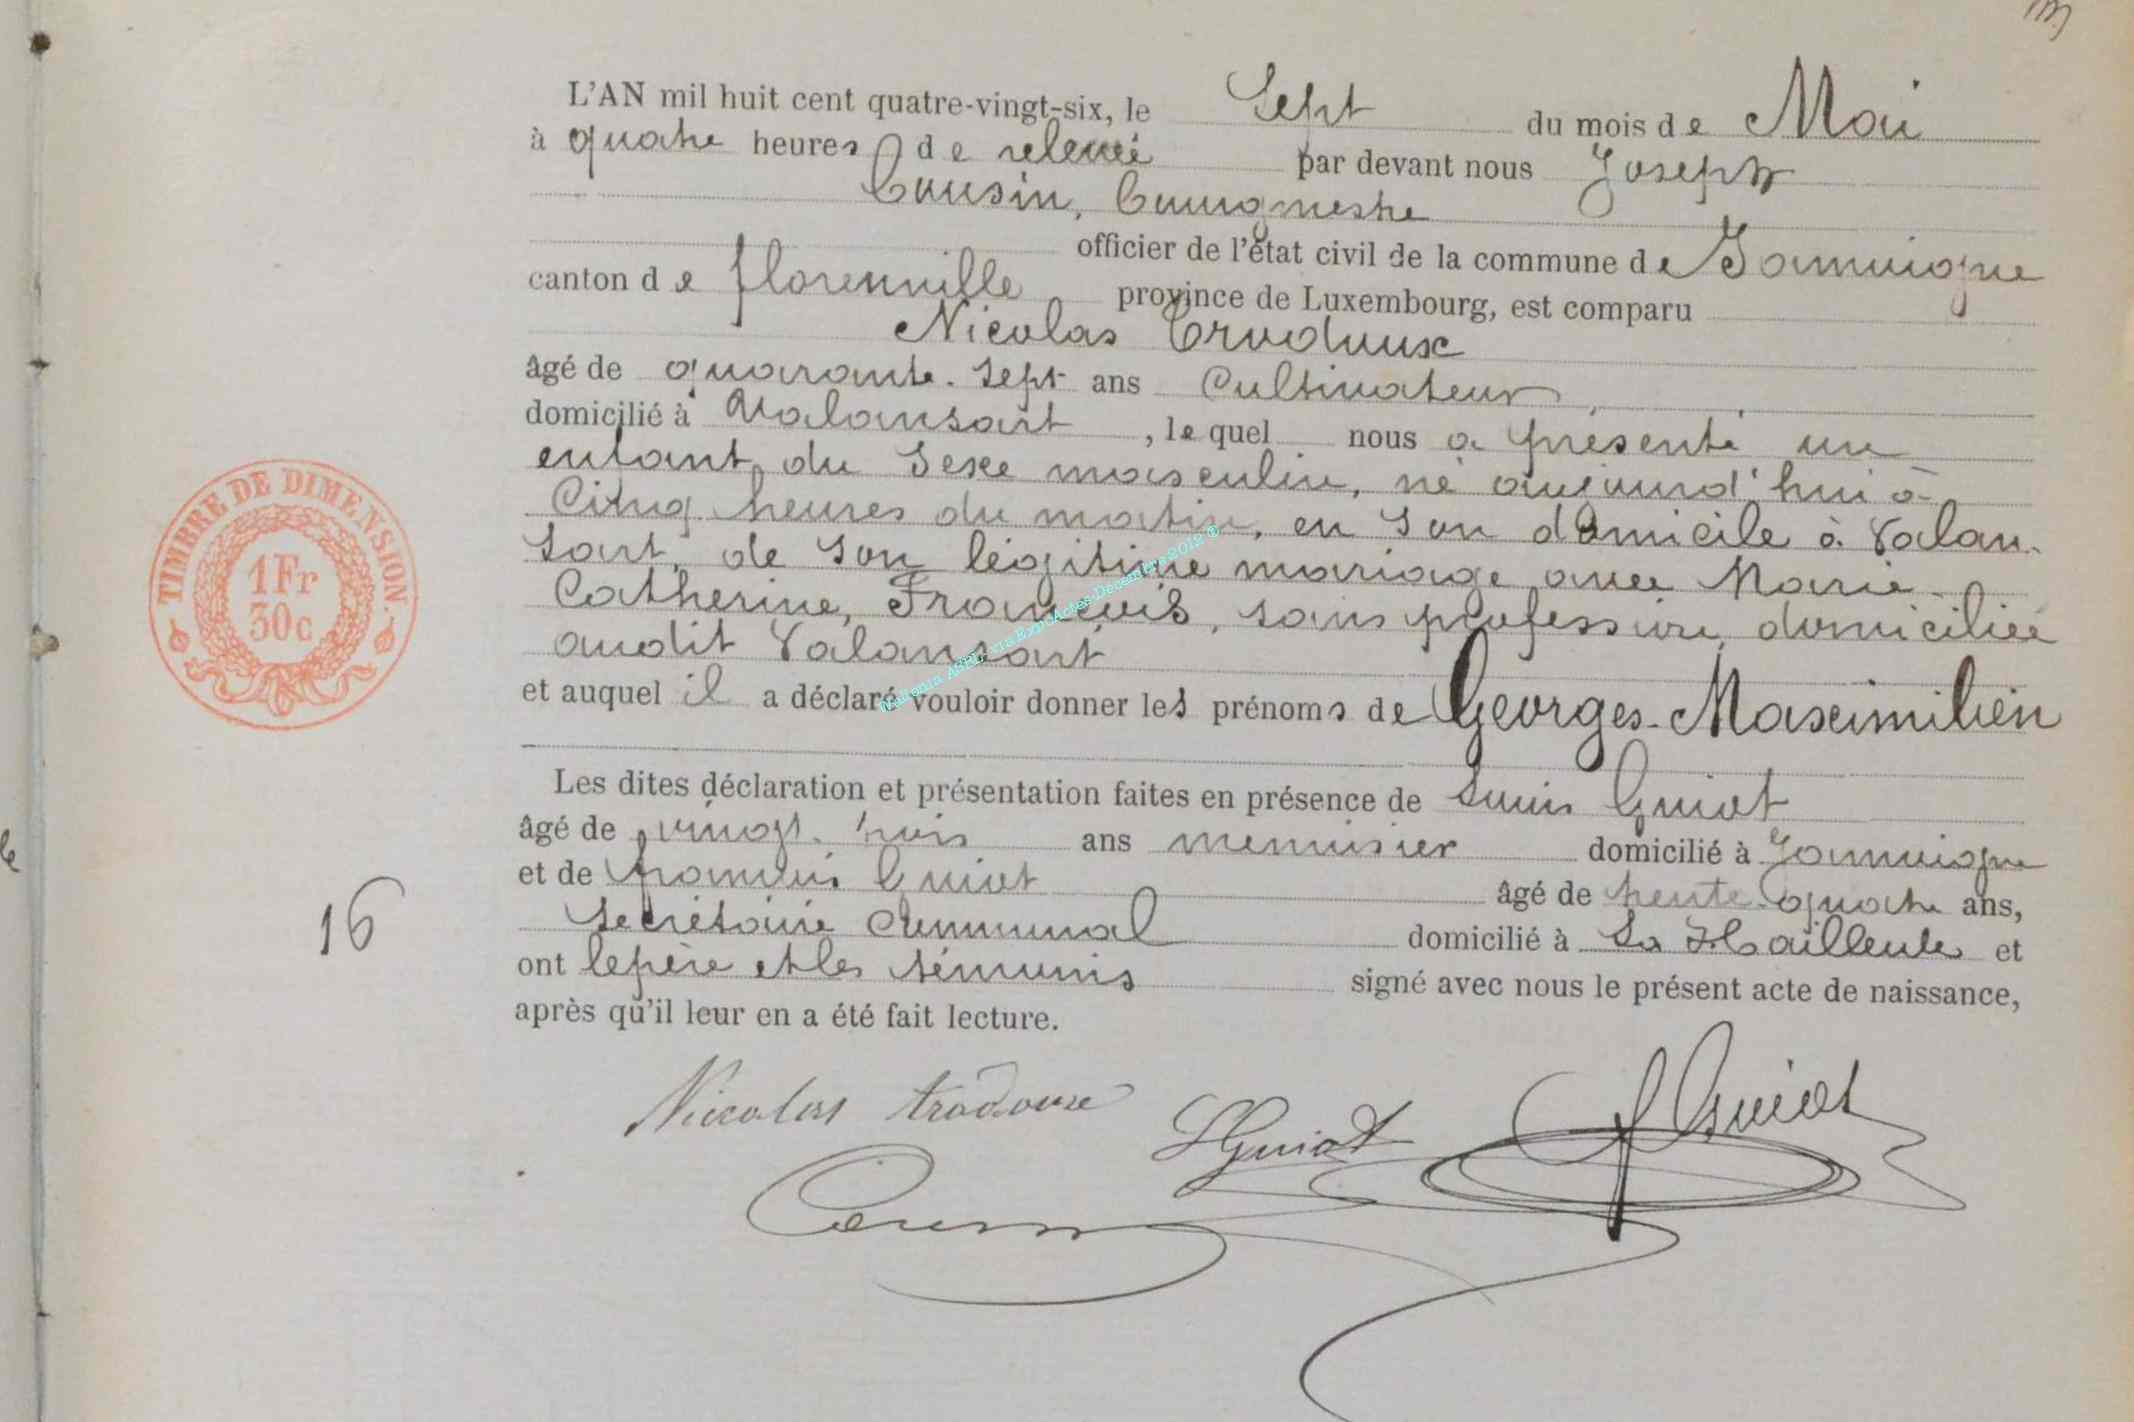 L'AN mil huit cent quatre-vingt-six, le Sept du mois de Mai
à quatre heures de relevée par devant nous Joseph
Cousin, bourgmestre
officier de l'état civil de la commune de Jamoigne
canton de florenville province de Luxembourg, est comparu
Nicolas Trodoux
âgé de quarante-sept ans Cultivateur,
domicilié à Valansart, lequel nous a présenté un
enfant du sexe masculin, né aujourd'hui à
Cinq heures du matin, en son domicile à Valan-
sart, de son légitime mariage avec Marie-
Catherine, François, sans profession, domiciliée
audit Valansart
et auquel il a déclaré vouloir donner les prénoms de Georges-Maximilien
Les dites déclaration et présentation faites en présence de Louis Guiot
âgé de vingt-trois ans menuisier domicilié à Jamoigne
et de françois Guiot âgé de trente-quatre ans,
secrétaire communal domicilié à et
ont le père et les témoins signé avec nous le présent acte de naissance,
après qu'il leur en a été fait lecture.
Nicolas trodoux
LGuiot
fGuiot
Cousin
TIMBRE DE DIMENSION.
1Fr
30c
16